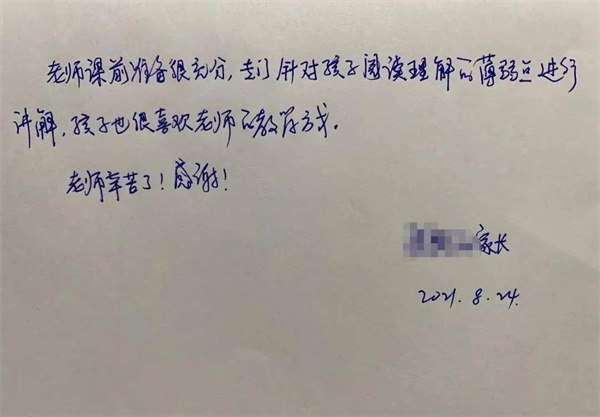 老师课前准备很充分，专门针对孩子阅读理解的薄弱点进行
讲解，孩子也很喜欢老师的教学方式。
老师辛苦了！感谢！
家长
2021.8.24